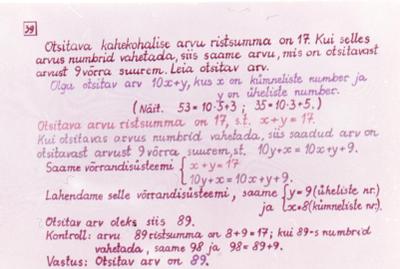 39
Otsitava kahekohalise arvu ristsumma on 17. Kui selles
arvus numbrid vahetada, siis saame arvu, mis on otsitavast
arvust 9 võrra suurem. Leia otsitav arv.
Olgu otsitav arv 10x+y, kus x on kümneliste number ja
y on üheliste number.
(Näit. 53=10·5+3; 35=10·3+5.)
Otsitava arvu ristsumma on 17, s.t. x+y=17.
Kui otsitavas arvus numbrid vahetada, siis saadud arv on
otsitavast arvust 9 võrra suurem, s.t. 10y+x=10x+y+9.
Saame võrrandisüsteemi { x+y=17
10y+x=10x+y+9.
Lahendame selle võrrandisüsteemi, saame { y=9 (üheliste nr.)
ja x=8 (kümneliste nr.)
Otsitav arv oleks siis 89.
Kontroll: arvu 89 ristsumma on 8+9=17; kui 89-s numbrid
vahetada, saame 98 ja 98=89+9.
Vastus: Otsitav arv on 89.